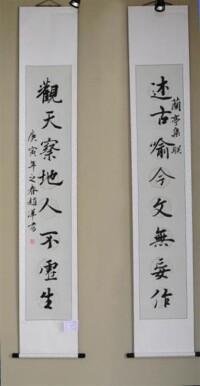 蘭亭集联
述古喻今文無妄作
觀天察地人不虚生
庚寅年之春趙洋書